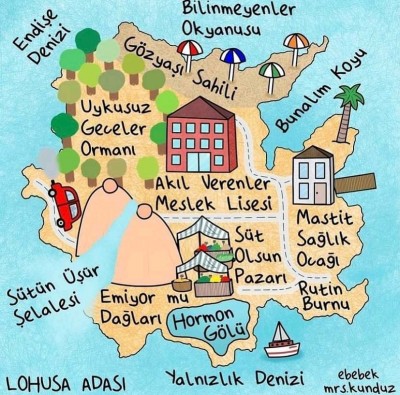 Bilinmeyenler
Okyanusu
Endişe
Denizi
Gözyaşı Sahili
Bunalım Koyu
Uykusuz
Geceler
Ormanı
Akıl Verenler
Meslek Lisesi
Mastit
Sağlık
Ocağı
Süt
Olsun
Pazarı
Sütün Üşür
Şelalesi
Emiyor mu
Dağları
Rutin
Burnu
Hormon
Gölü
Yalnızlık Denizi
LOHUSA ADASI
ebebek
mrs.kunduz